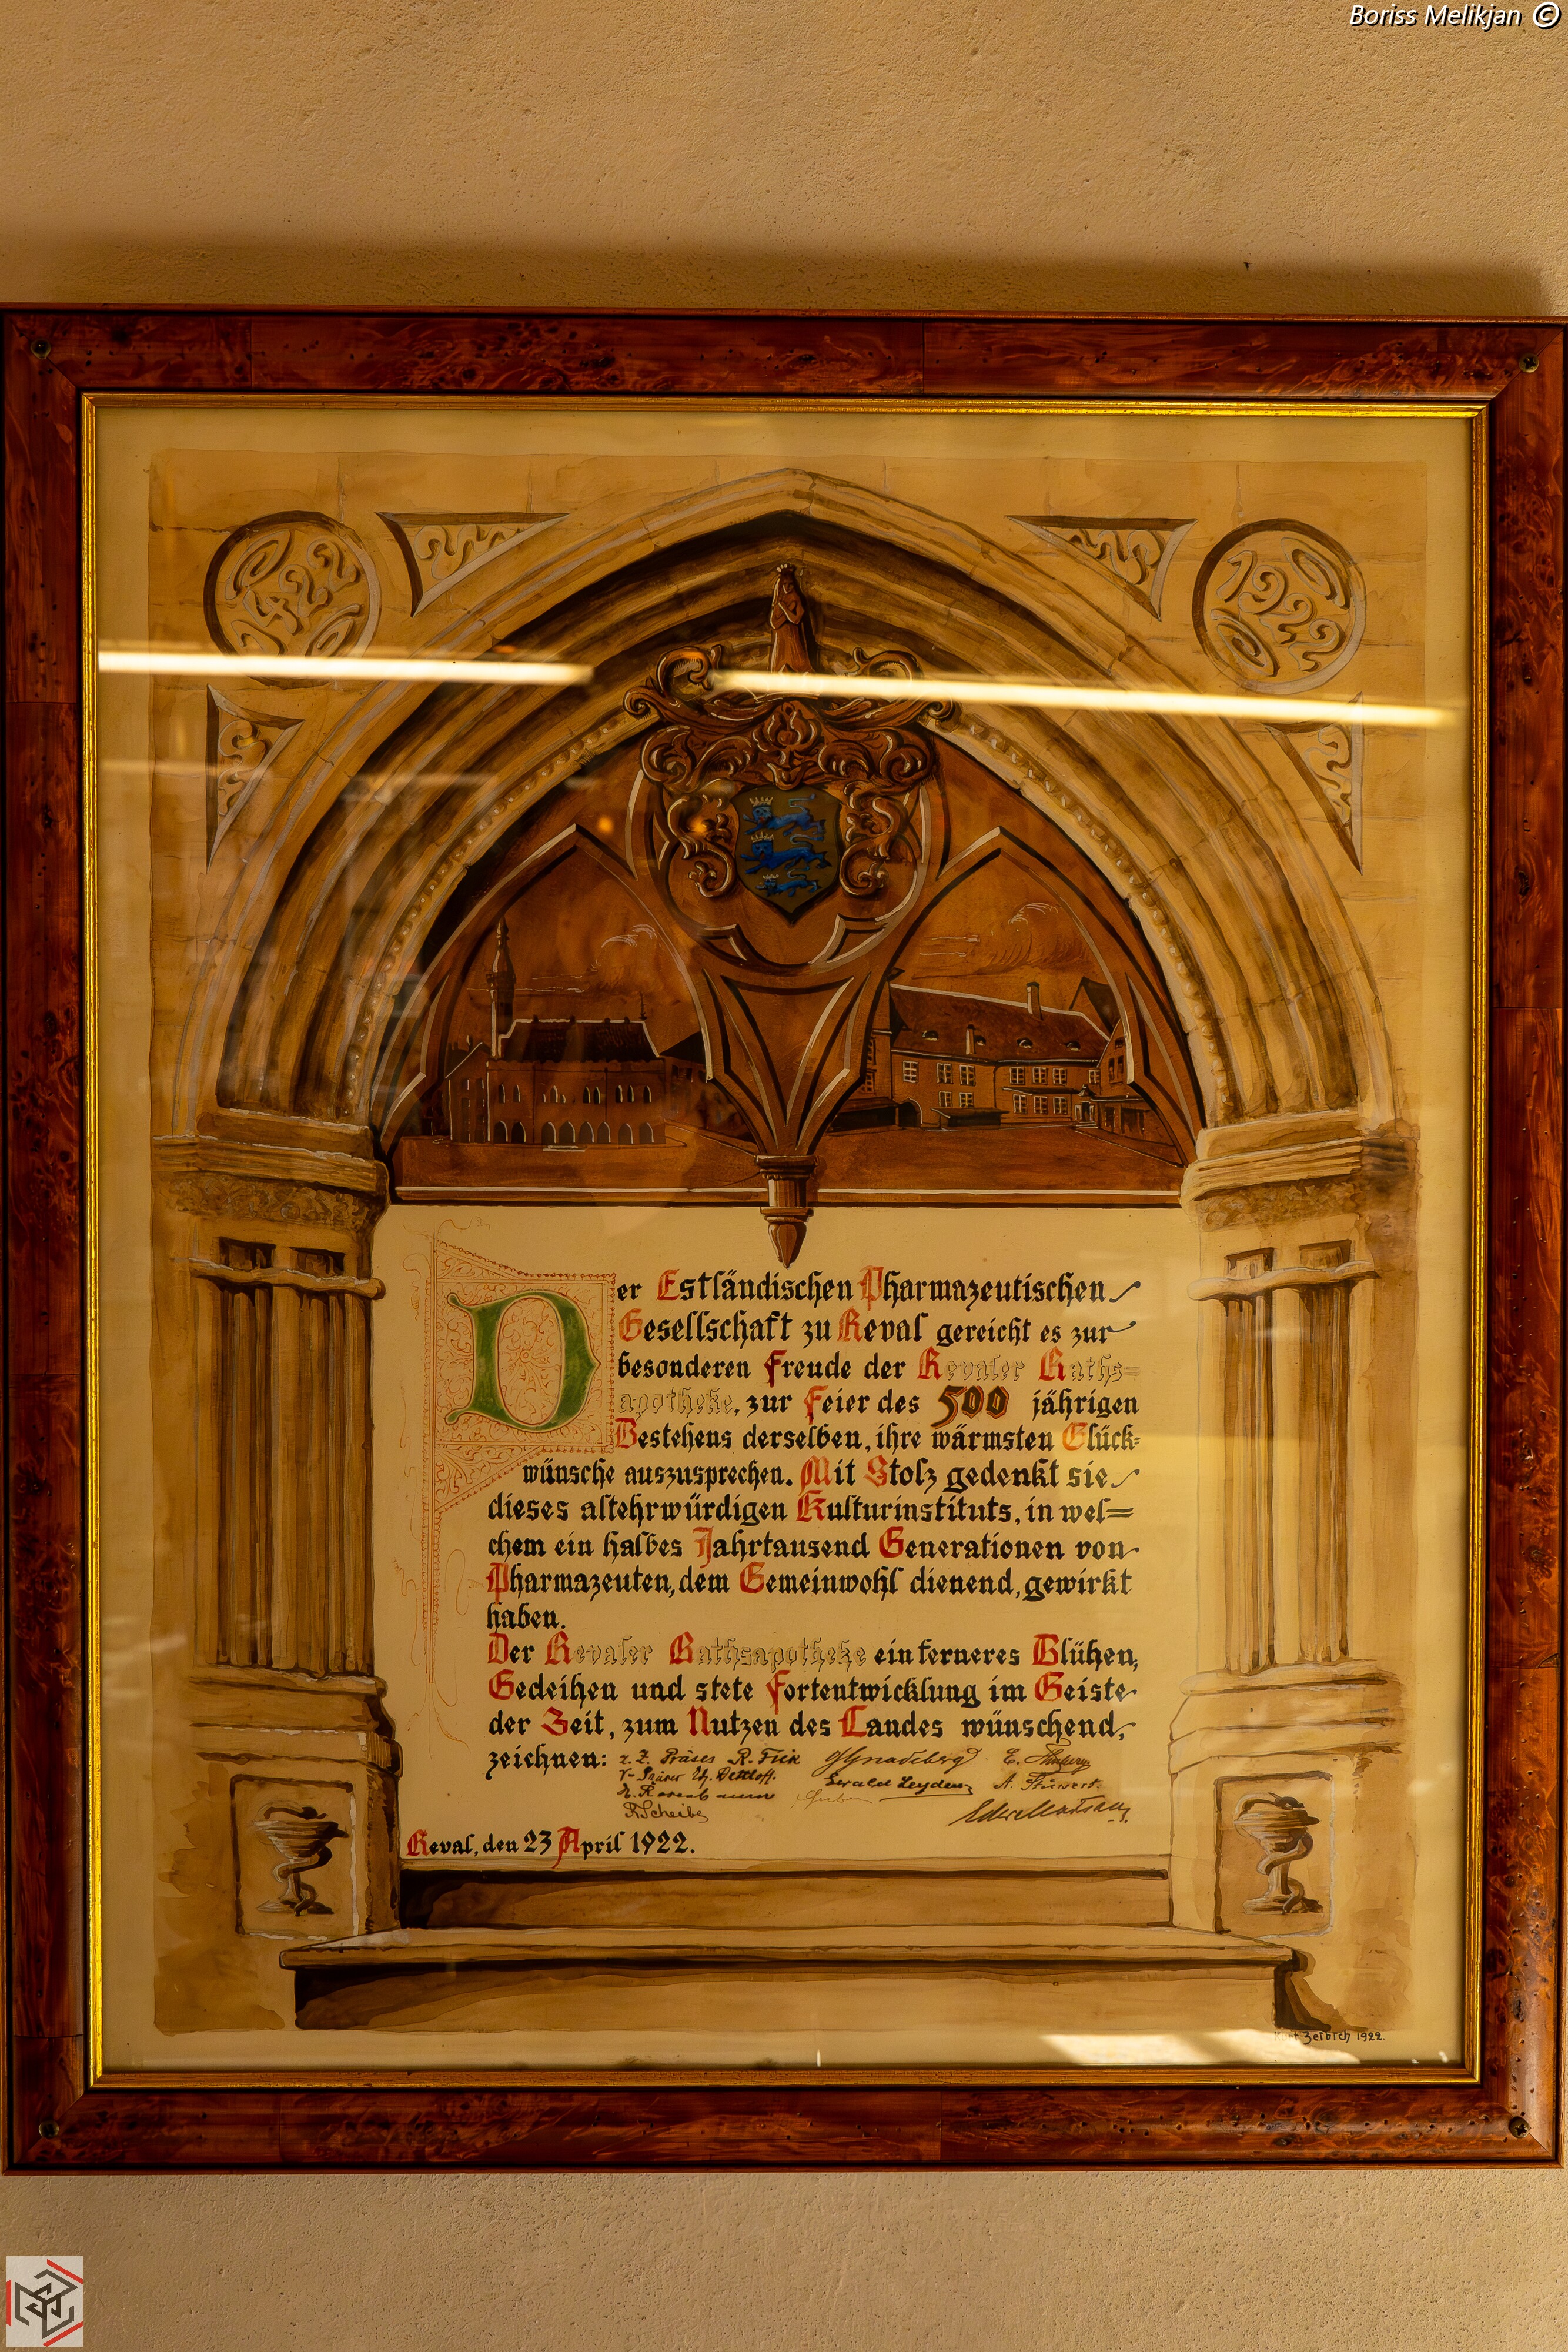 Boriss Melikjan ©
1422
1922
Der Estländischen Pharmazeutischen
Gesellschaft zu Reval gereicht es zur
besonderen Freude der Revaler Raths=
apotheke, zur Feier des 500 jährigen
Bestehens derselben, ihre wärmsten Glück=
wünsche auszusprechen. Mit Stolz gedenkt sie
dieses altehrwürdigen Kulturinstituts, in wel=
chem ein halbes Jahrtausend Generationen von
Pharmazeuten, dem Gemeinwohl dienend, gewirkt
haben.
Der Revaler Rathsapotheke ein ferneres Blühen,
Gedeihen und stete Fortentwicklung im Geiste
der Zeit, zum Nutzen des Landes wünschend,
zeichnen: z. Z. Präses R. Fick
Ewald Leyden
R Scheibe
Reval, den 23 April 1922.
Kurt Zeibich 1922.